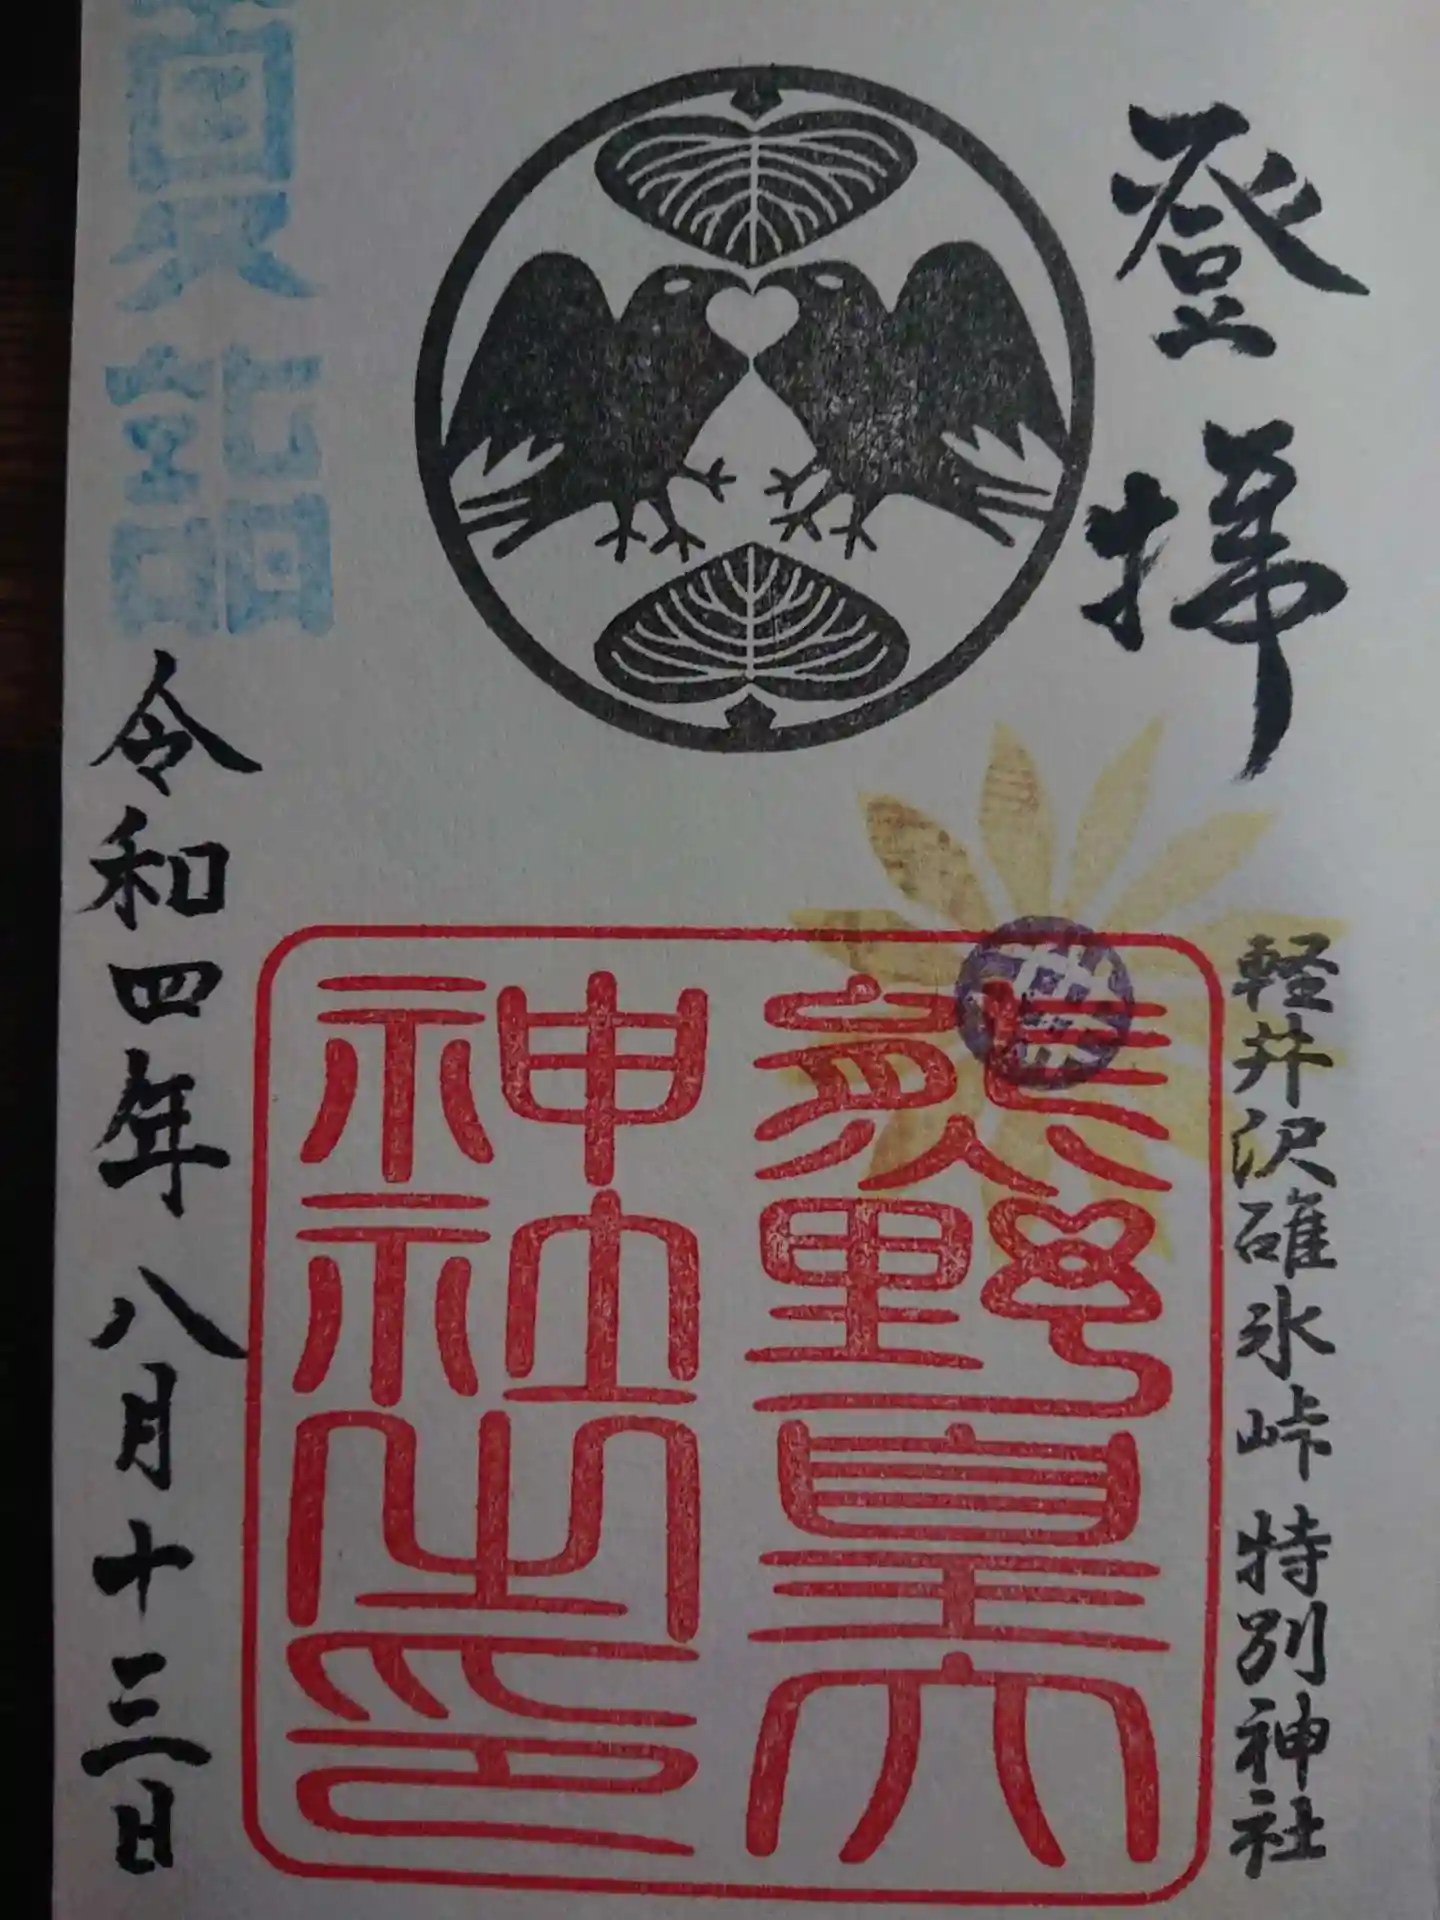 登拝
軽井沢碓氷峠 特別神社
熊野皇大
神社之印
夏詣
令和四年 八月十三日